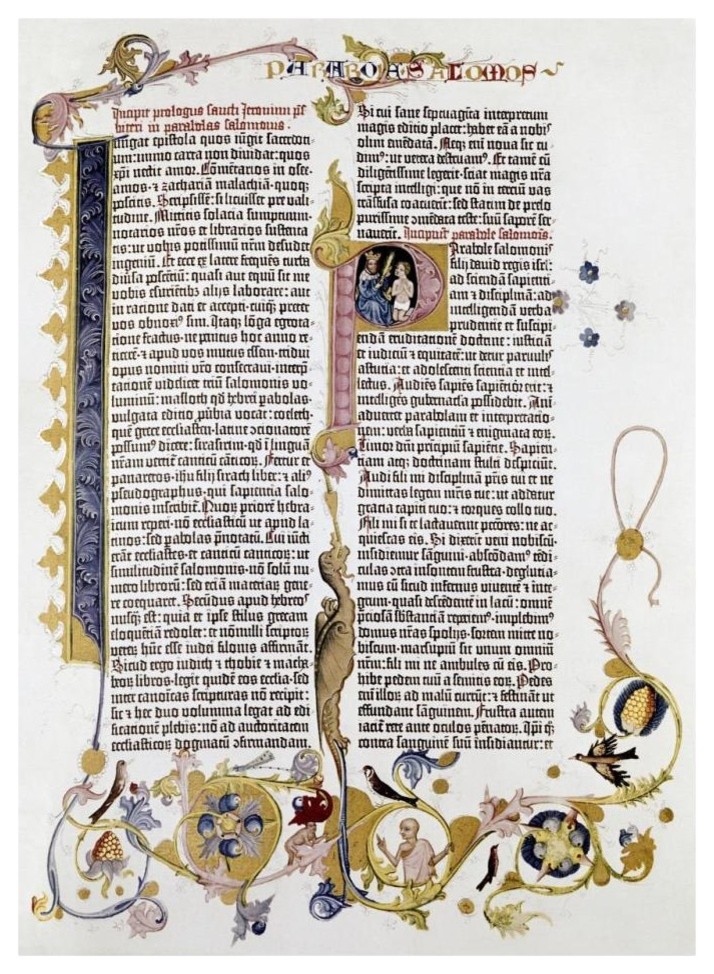 PARABOLE SALOMONIS
Incipit prologus sancti Jeronimi p̄s
biteri in parabolas salomonis.
Iungat epistola quos iūgit sacerdoti-
um: immo carta non diuidat: quos
xp̄i nectit amor. Cōmētarios in osee-
amos-⁊ zachariā malachiā-quoq;
poscitis. Scripsissē: si licuisset pre vali-
tudine. Mittitis solacia sumptuum-
notarios nr̄os et librarios sustenta-
tis: ut vobis potissimū nr̄m desudet
ingeniū. Et ecce ex latere frequēs turba
diu̅sa poscētiū: quasi aut equū sit me
vobis esurientibꝫ alijs laborare: aut
in ratione dati et accepti-cuiq̄; preter
vos obnoxiꝰ sim. Itaq; lōga egrota-
tione fractus-ne penitus hoc anno re-
ticerē-⁊ apud vos mutus essem-tridui
opus nomini vr̄o consecraui-interp-
tationē videlicet triū salomonis vo-
luminū: masloth qd̄ hebrei pabolas-
vulgata editio ꝓūbia vocat: coeleth-
quē grece ecclesiasten-latine ꝯcionatorē
possumꝰ dicere: sirasirim-qd̄ ī linguā
nr̄am vertit̄ canticū cāticoꝝ. Fertur et
panaretos-ih̄u filij sirach liber: ⁊ aliꝰ
pseudographus-qui sapientia salo-
monis inscribit̄. Quoꝝ priorē hebra-
icum reperi-nō ecclesiasticū ut apud la-
tinos: sed pabolas p̄notatū. Cui iūcti
erāt ecclesiastes-et canticū canticoꝝ: ut
similitudinē salomonis-nō solū nu-
mero librorū: sed etiā materiaꝝ gene-
re coequaret. Secūdus apud hebreoˢ
nusq̄ est: quia et ipse stilus grecam
eloquētiā redolet: et nōnulli scriptoꝝ
veteꝝ hūc esse iudei filonis affirmāt.
Sicut ergo iudith ⁊ thobie ⁊ macha-
beoꝝ libros-legit quidē eos ecclesia-sed
inter canonicas scripturas nō recipit:
sic ⁊ hec duo volumina legat ad edi-
ficationē plebis: nō ad auctoritatem
ecclesiasticoꝝ dogmatū ꝯfirmandam.
Si cui sane septuaginta interpretum
magis editio placet: habet eā a nobis
olim emēdatā. Neq; enī noua sic cu-
dimꝰ: ut vetera destruamꝰ. Et tamē cū
diligētissime legerit-sciat magis nr̄a
scripta intelligi: que nō in tertiū vas
trāsfusa coacuerit: sed statim de prelo
purissime ꝯmēdata teste: suū saporē ser-
uauerit. Incipiunt parabole salomonis.
Parabole salomonis
filij dauid regis isrl̄:
ad sciendā sapienti-
am ⁊ disciplinā: ad
intelligenda verba
prudentie et suscipi-
endā eruditationē doctrine: iusticiā
et iudiciū ⁊ equitatē: ut detur paruulis
astutia: et adolescenti scientia et intel-
lectus. Audiēs sapiēs sapientior erit: ⁊
intelligēs gubernacla possidebit. Ani-
aduertet parabolam et interpretatio-
nem: verba sapientiū ⁊ enigmata eoꝝ.
Timor dn̄i principiū sapiētie. Sapien-
tiam atq; doctrinam stulti despiciūt.
Audi fili mi disciplinā pr̄is tui et ne
dimittas legem mr̄is tue: ut addatur
gracia capiti tuo: ⁊ torques collo tuo.
Fili mi si te lactauerint pctōres: ne ac-
quiescas eis. Si dixerīt veni nobiscū-
insidiemur sāguini-abscōdamꝰ tēdi-
culas ꝯtra insontem frustra-deglutia-
mus eū sicud infernus viuentē ⁊ inte-
grum-quasi descēdentē in lacū: omnē
preciosā substantiā reperiemꝰ-implebimꝰ
domus nr̄as spolijs-sortem mitte no-
biscum-marsupiū sit unum omniū
nr̄m: fili mi ne ambules cū eis. Pro-
hibe pedem tuū a semitis eoꝝ. Pedes
eni̅ illoꝝ ad malū currūt: ⁊ festināt ut
effundant sāguinem. Frustra autem
iacit̄ rete ante oculos pēnatoꝝ. Ipi q̄
contra sanguinē suū insidiantur: et